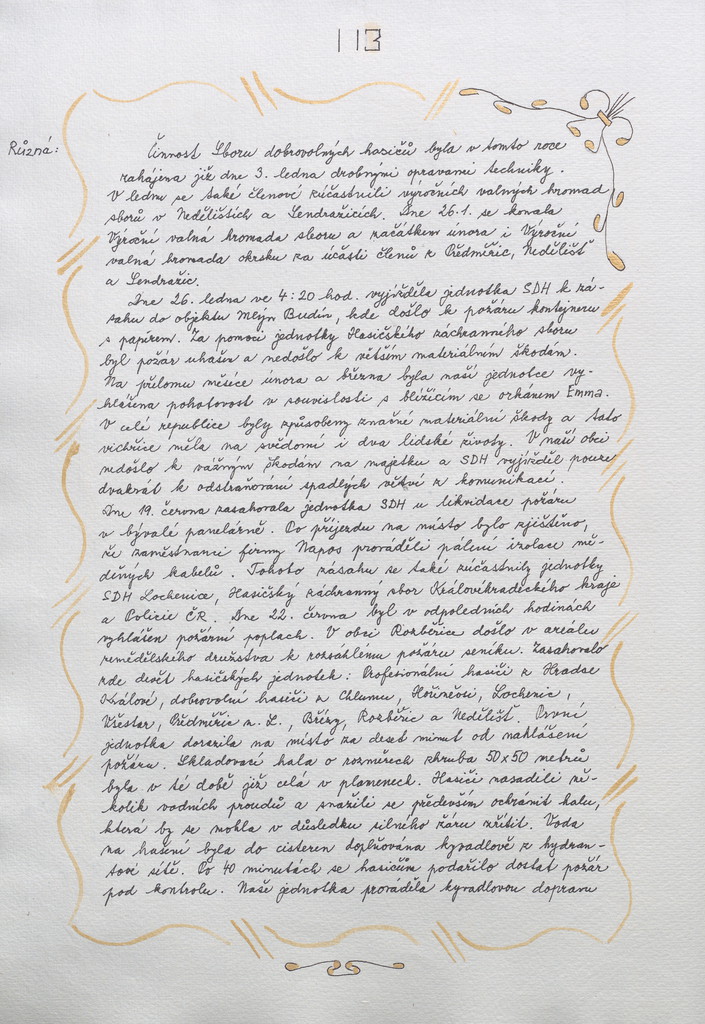 113
Různá:
Činnost Sboru dobrovolných hasičů byla v tomto roce
zahájena již dne 3. ledna drobnými opravami techniky.
V lednu se také členové zúčastnili výročních valných hromad
sborů v Nedělištích a Sendražicích. Dne 26.1. se konala
Výroční valná hromada sboru a začátkem února i Výroční
valná hromada okrsku za účasti členů z Předměřic, Nedělišť
a Sendražic.
Dne 26. ledna ve 4:20 hod. vyjížděla jednotka SDH k zá-
sahu do objektu Mlýn Budín, kde došlo k požáru kontejneru
s papírem. Za pomoci jednotky Hasičského záchranného sboru
byl požár uhašen a nedošlo k větším materiálním škodám.
Na přelomu měsíce února a března byla naší jednotce vy-
hlášena pohotovost v souvislosti s blížícím se orkánem Emma.
V celé republice byly způsobeny značné materiální škody a tato
vichřice měla na svědomí i dva lidské životy. V naší obci
nedošlo k vážným škodám na majetku a SDH vyjížděl pouze
dvakrát k odstraňování spadlých větví z komunikací.
Dne 19. června zasahovala jednotka SDH u likvidace požáru
v bývalé panelárně. Po příjezdu na místo bylo zjištěno,
že zaměstnanci firmy Napos prováděli pálení izolace mě-
děných kabelů. Tohoto zásahu se také zúčastnily jednotky
SDH Lochenice, Hasičský záchranný sbor Královéhradeckého kraje
a Policie ČR. Dne 22. června byl v odpoledních hodinách
vyhlášen požární poplach. V obci Rozběřice došlo v areálu
zemědělského družstva k rozsáhlému požáru seníku. Zasahovalo
zde deset hasičských jednotek: Profesionální hasiči z Hradce
Králové, dobrovolní hasiči z Chlumu, Hořiněvsi, Lochenic,
Všestar, Předměřic n. L., Břízy, Rozběřic a Nedělišť. První
jednotka dorazila na místo za deset minut od nahlášení
požáru. Skladovací hala o rozměrech zhruba 50x50 metrů
byla v té době již celá v plamenech. Hasiči nasadili ně-
kolik vodních proudů a snažili se především ochránit halu,
která by se mohla v důsledku silného žáru zřítit. Voda
na hašení byla do cisteren doplňována kyvadlově z hydran-
tové sítě. Po 40 minutách se hasičům podařilo dostat požár
pod kontrolu. Naše jednotka prováděla kyvadlovou dopravu